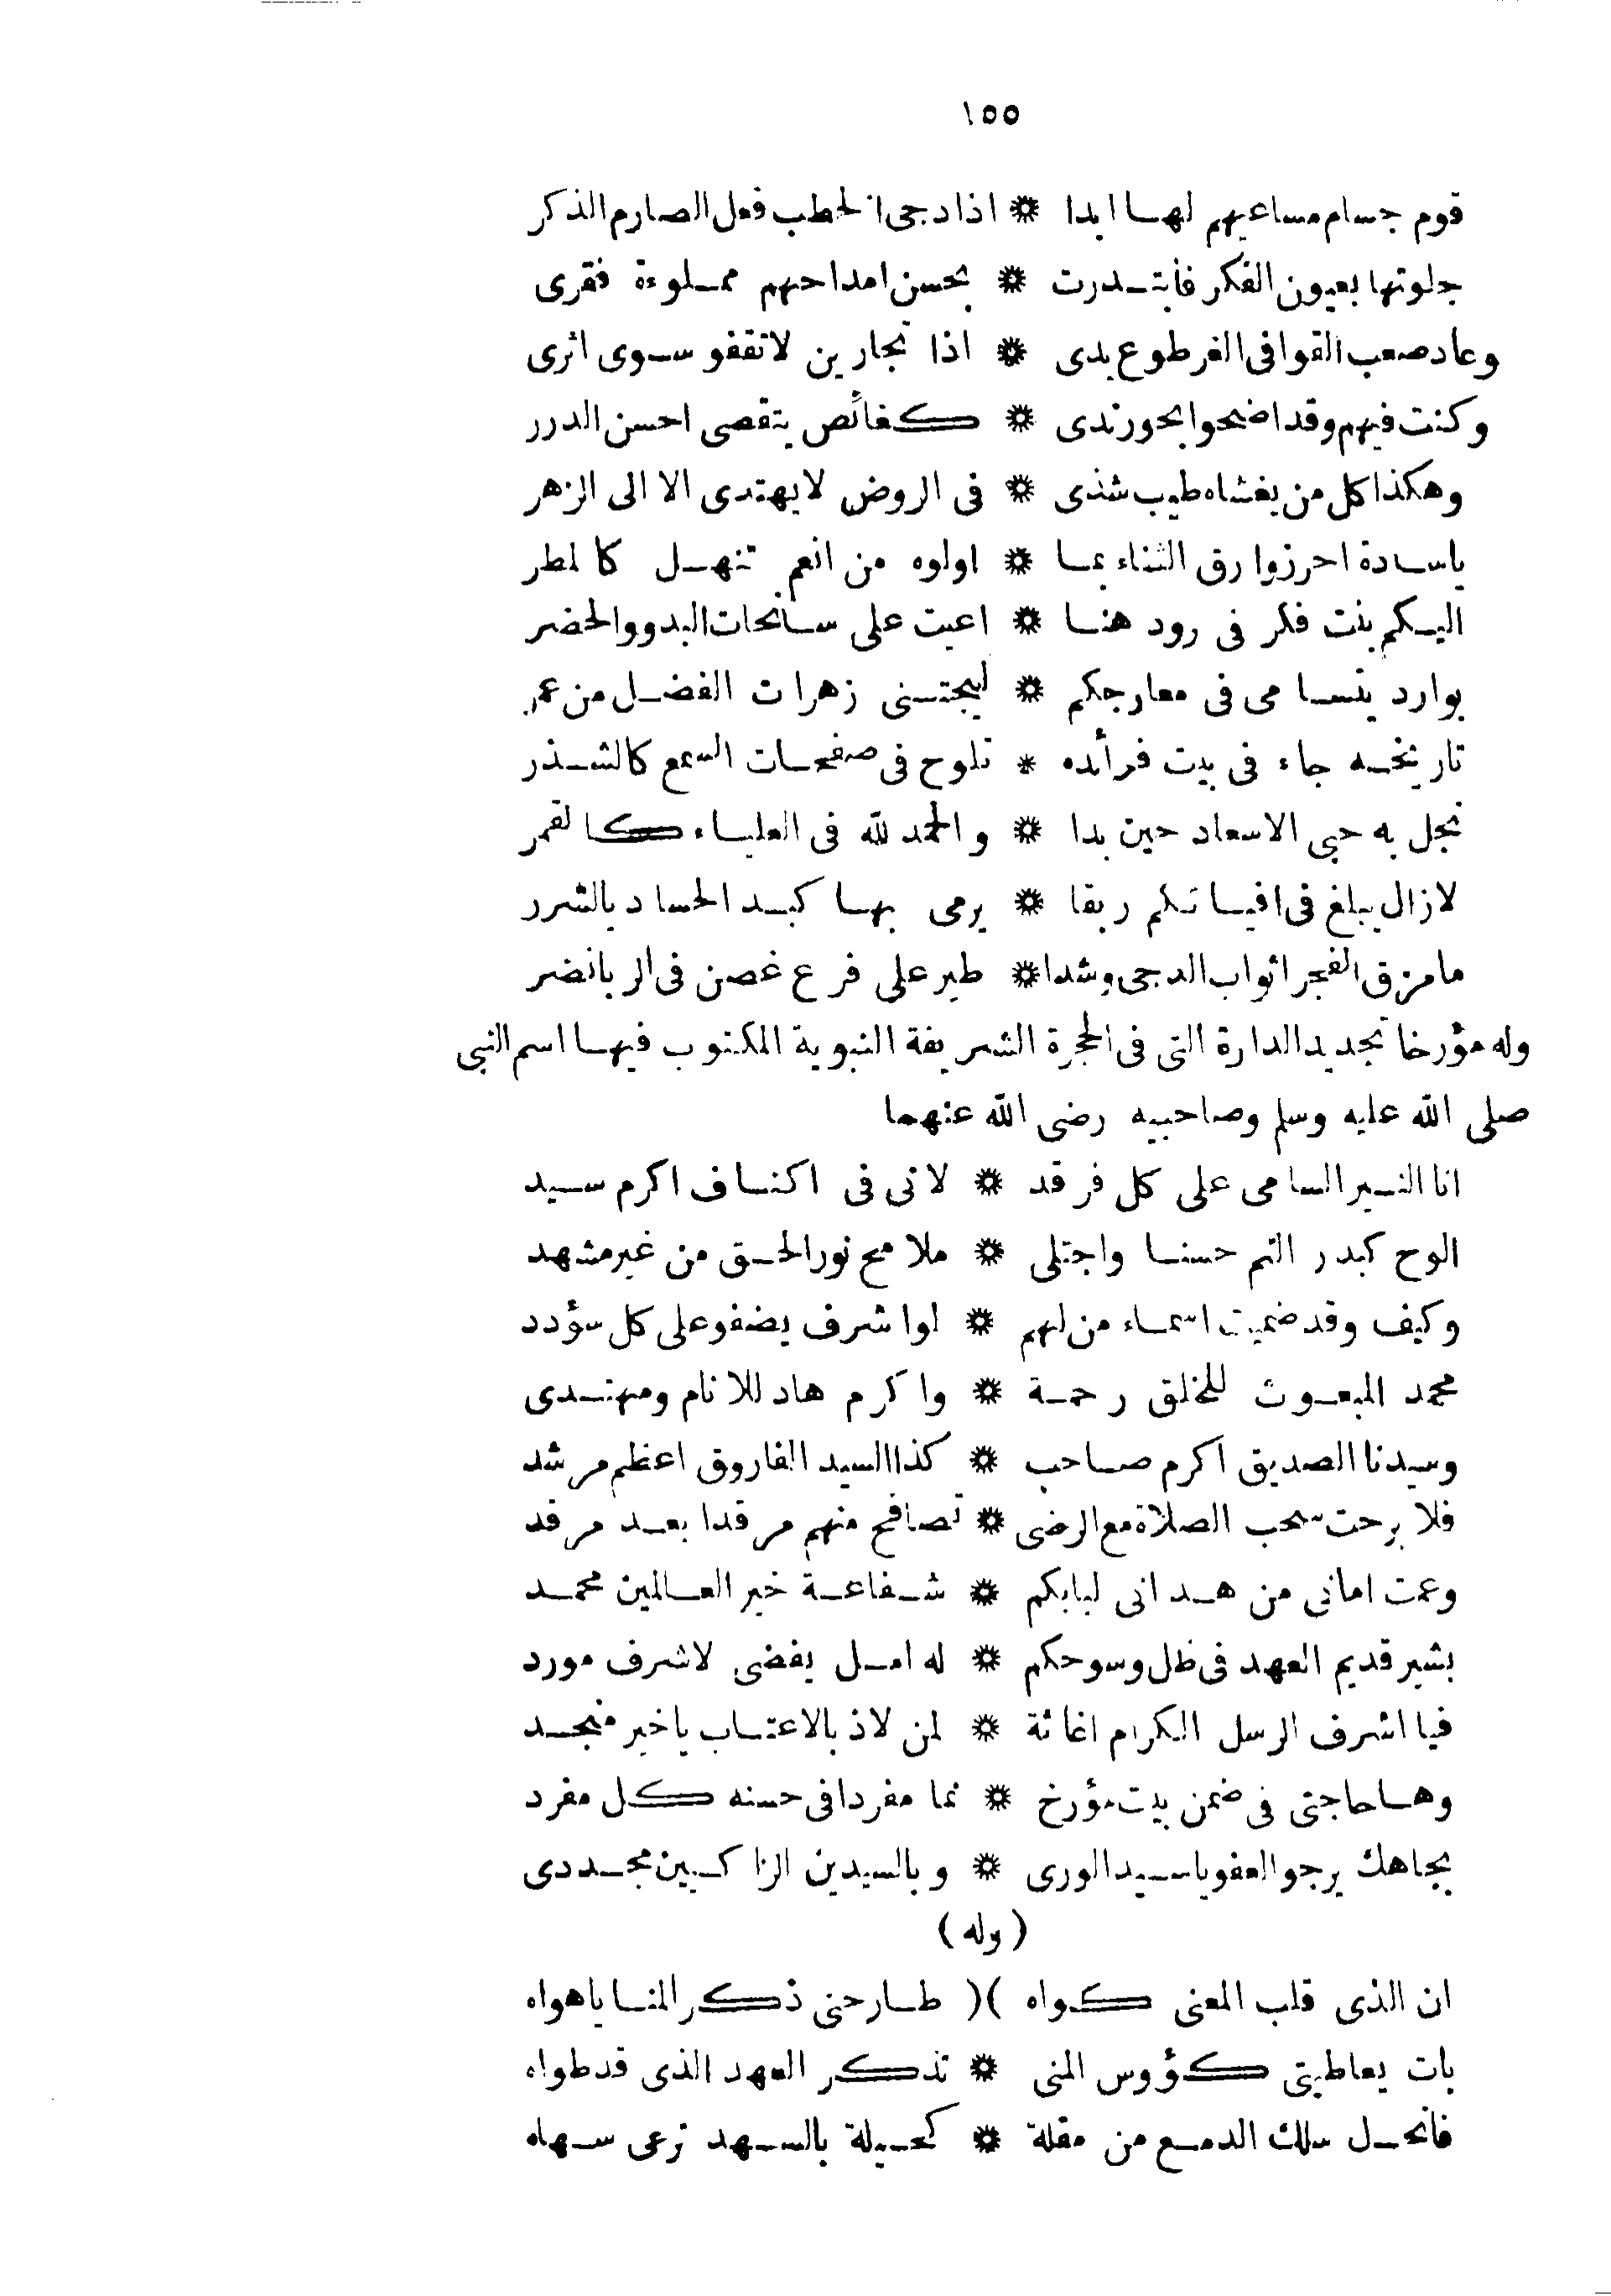 ١٥٥
قوم جسام مساعيهم لها ابدا * اذا دجى الخطب فعل الصارم الذكر
جلوتها بعيون الفكر فابتدرت * بحسن امداحهم مملوءة فقرى
وعاد صعب القوافى الغر طوع يدى * اذا تجارين لا تقفو سوى اثرى
وكنت فيهم وقد اضحوا بحور ندى * كغائص يتقصى احسن الدرر
وهكذا كل من يغشاه طيب شذى * فى الروض لا يهتدى الا الى الزهر
ياسادة احرزوا رق الثناء بما * اولوه من انعم تنهل كالمطر
اليكم بنت فكر فى رود هنا * اعيت على سانحات البدو والحضر
بوارد يتسامى فى معارجكم * ليجتنى زهرات الفضل من عمر
تاريخه جاء فى بيت فرائده * تلوح فى صفحات السمع كالشذر
نجل به حبى الاسعاد حين بدا * والحمد لله فى العلياء كالقمر
لازال يبلغ فى افيائكم ربقا * يرمى بها كبد الحساد بالشرر
ما مزق الفجر اثواب الدجى وشدا * طير على فرع غصن فى الربا نضر
وله مؤرخا تجديد الدارة التى فى الحجرة الشريفة النبوية المكتوب فيها اسم النبى
صلى الله عليه وسلم وصاحبيه رضى الله عنهما
انا النير السامى على كل فرقد * لانى فى اكناف اكرم سيد
الوح كبدر التم حسنا واجتلى * ملامح نور الحق من غير مشهد
وكيف وقد ضميت اسماء من لهم * لوا شرف يضفو على كل سؤدد
محمد المبعوث للخلق رحمة * واكرم هاد للانام ومهتدى
وسيدنا الصديق اكرم صاحب * كذا السيد الفاروق اعظم مرشد
فلا برحت سحب الصلاة مع الرضى * تصافح منهم مرقدا بعد مرقد
وعمت امانى من هدانى لبابكم * شفاعة خير العالمين محمد
بشير قديم العهد فى ظل وسوحكم * له امل يفضى لاشرف مورد
فيا اشرف الرسل الكرام اغاثة * لمن لاذ بالاعتاب ياخير منجد
وها حاجتى فى ضمن بيت مؤرخ * نما مفردا فى حسنه كل مفرد
بجاهك يرجو العفو ياسيد الورى * وبالسيدين الزاكيين مجددى
(وله)
ان الذى قلب المعنى كواه )( طارحنى ذكر المنا ياهواه
بات يعاطينى كؤوس المنى * تذكر العهد الذى قد طواه
فانحل سلك الدمع من مقلة * كحيلة بالسهد ترعى سهاه